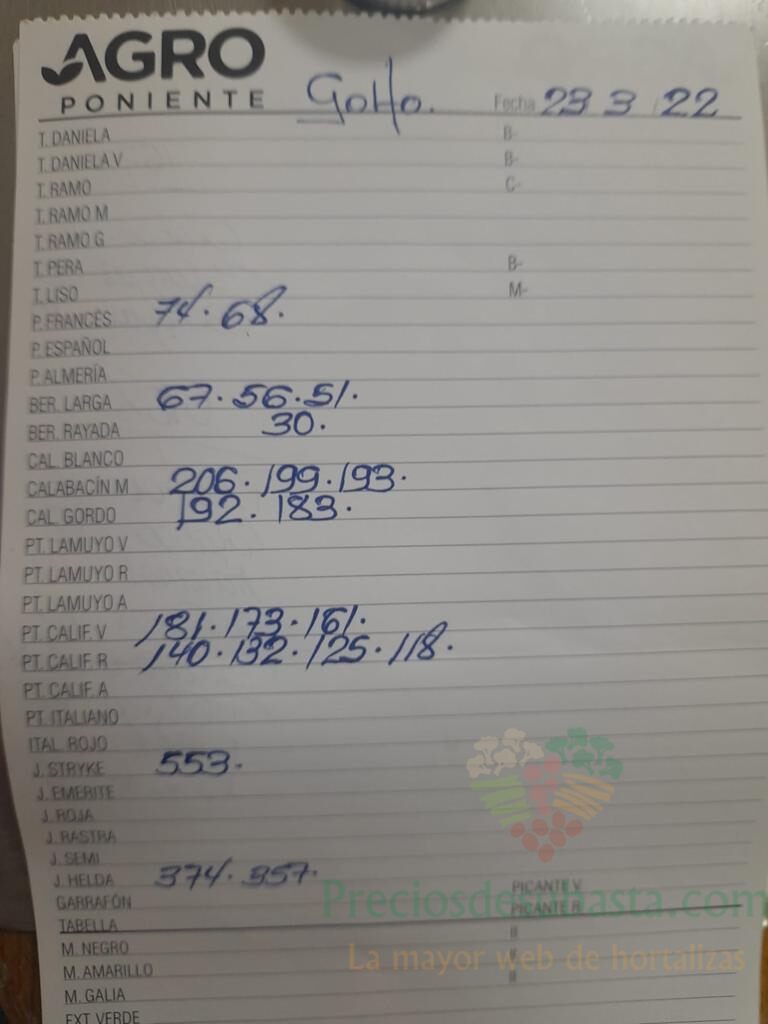 AGRO
PONIENTE
Golfo. Fecha 23 3 22
T. DANIELA B-
T. DANIELA V B-
T. RAMO C-
T. RAMO M
T. RAMO G
T. PERA B-
T. LISO M-
P. FRANCÉS 74. 68.
P. ESPAÑOL
P. ALMERÍA
BER. LARGA 67. 56. 51.
BER. RAYADA 30.
CAL. BLANCO
CALABACÍN M 206. 199. 193.
CAL. GORDO 192. 183.
PT. LAMUYO V
PT. LAMUYO R
PT. LAMUYO A
PT. CALIF. V 181. 173. 161.
PT. CALIF. R 140. 132. 125. 118.
PT. CALIF. A
PT. ITALIANO
ITAL. ROJO
J. STRYKE 553.
J. EMERITE
J. ROJA
J. RASTRA
J. SEMI
J. HELDA 374. 357.
GARRAFÓN PICANTE V
PICANTE R
Preciosdesubasta.com
TABELLA
M. NEGRO
La mayor web de hortalizas
M. AMARILLO
M. GALIA
EXT. VERDE